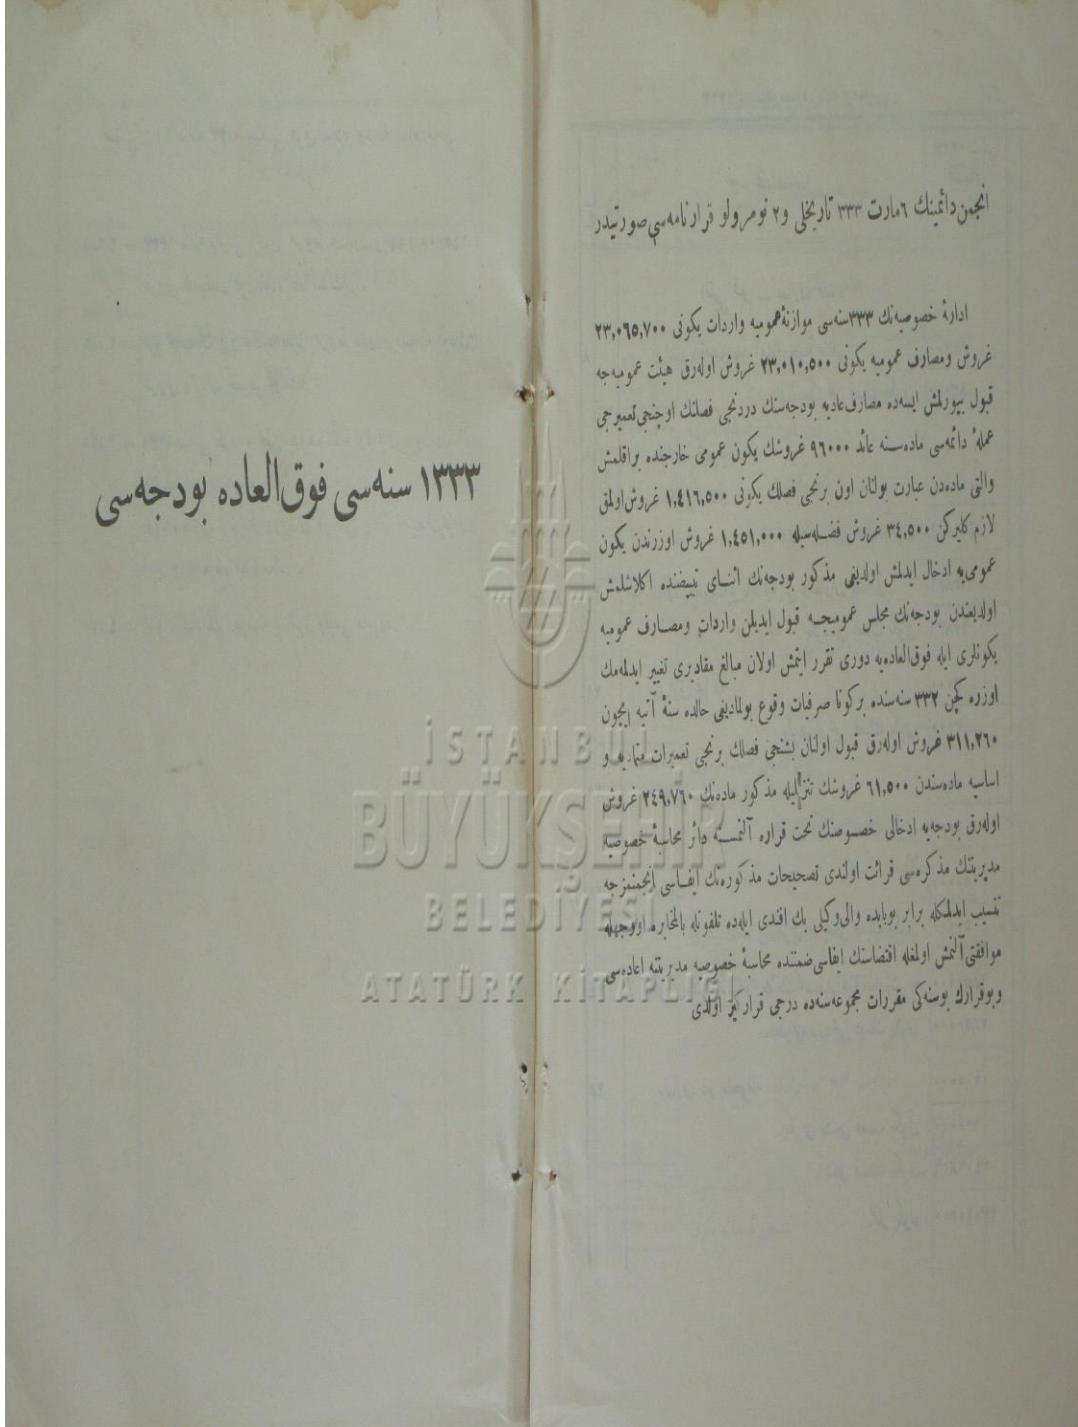 انجمن دائمینك ٦ مارت ٣٣٣ تاریخلی و٢ نومرولو قرارنامه‌سی صورتیدر
ادارهٔ خصوصیه‌نك ٣٣٣ سنه‌سی موازنهٔ عمومیه واردات یكونی ٢٣,٠٦٥,٧٠٠
غروش ومصارف عمومیه یكونی ٢٣,٠١٠,٥٠٠ غروش اوله‌رق هیئت عمومیه‌جه
قبول بیورلمش ایسه‌ده مصارف عادیه بودجه‌سنك دردنجی فصلنك اوچنجی تعمیرجی
عملهٔ دائمه‌سی ماده‌سنه عائد ٩٦٠٠٠ غروشك یكون عمومی خارجنده براقلمش
والتی ماده‌دن عبارت بولنان اون برنجی فصلك یكونی ١,٤١٦,٥٠٠ غروش اولمق
لازم كلیركن ٣٤,٥٠٠ غروش فضله‌سیله ١,٤٥١,٠٠٠ غروش اوزرندن یكون
عمومی‌یه ادخال ایدلمش اولدیغی مذكور بودجه‌نك اثنای تبییضنده اكلاشلمش
اولدیغندن بودجه‌نك مجلس عمومیجه قبول ایدیلن واردات ومصارف عمومیه
یكونلری ایله فوق‌العاده‌یه دوری تقرر ایتمش اولان مبالغ مقادیری تغییر ایدلمه‌مك
اوزره كچن ٣٣٢ سنه‌سنده بركونا صرفیات وقوع بولمادیغی حالده سنهٔ آتیه ایچون
٣١١,٢٦٠ غروش اوله‌رق قبول اولنان بشنجی فصلك برنجی تعمیرات متمادیه و
اساسیه ماده‌سندن ٦١,٥٠٠ غروشك تنزیلیله مذكور ماده‌نك ٢٤٩,٧٦٠ غروش
اوله‌رق بودجه‌یه ادخالی خصوصنك تحت قراره آلنمسنه دائر محاسبهٔ خصوصیه
مدیریتنك مذكره‌سی قرائت اولندی تصحیحات مذكوره‌نك ایفاسی انجمنمزجه
تنسیب ایدلمكله برابر بوبابده والی وكیلی بك افندی ایله‌ده تلفونله بالمخابره اووجهله
موافقتی آلنمش اولمغله اقتضاسنك ایفاسی ضمننده محاسبهٔ خصوصیه مدیریتنه اعاده‌سی
وبوقرارك بوسنه‌كی مقررات مجموعه‌سنه‌ده درجی قراركیر اولدی
١٣٣٣ سنه‌سی فوق‌العاده بودجه‌سی
İSTANBUL
BÜYÜKŞEHİR
BELEDİYESİ
ATATÜRK KİTAPLIĞI